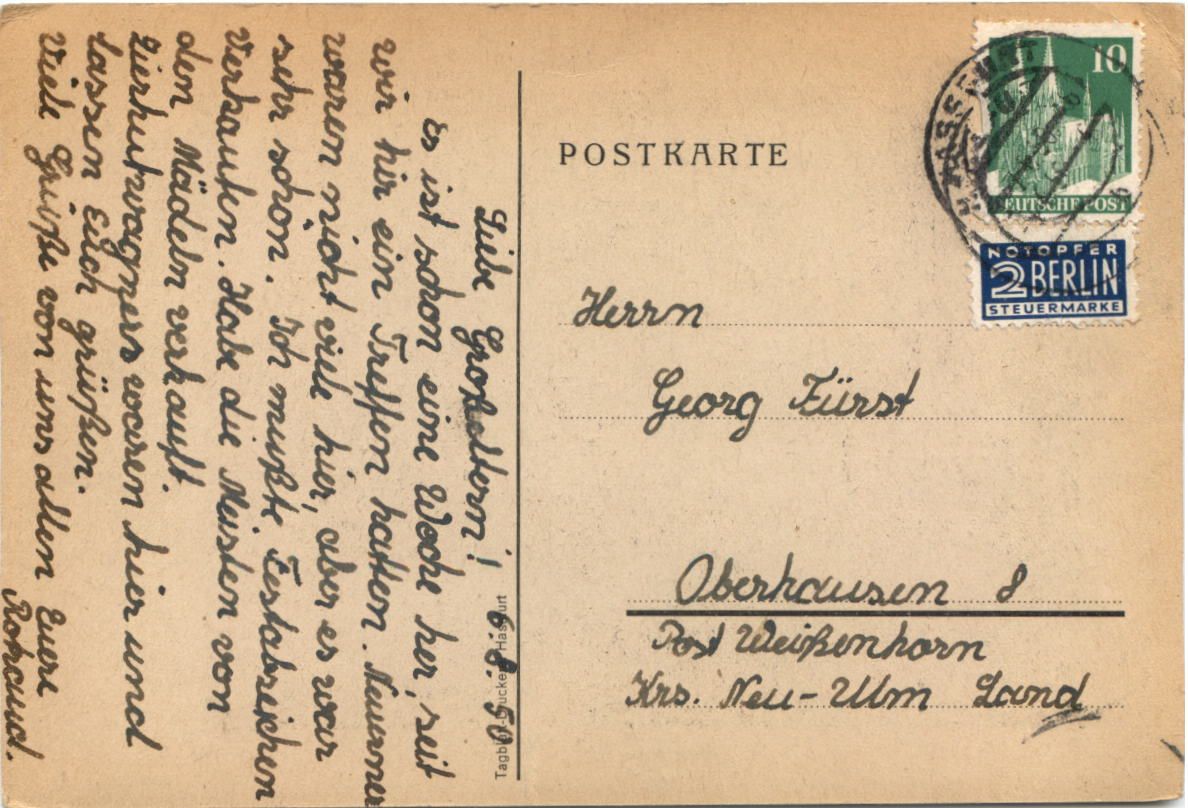 Liebe Großeltern! 6.8.50
Es ist schon eine Woche her, seit
wir hir ein Treffen hatten. Neunner
waren nicht viele hier, aber es war
sehr schön. Ich mußte Festabzeichen
verkaufen. Habe die Meisten von
den Mädeln verkauft.
waren hier und
lassen Euch grüßen.
Viele Grüße von uns allen Eure
Rotraud.
Tagblatt-Druckerei Hassfurt
POSTKARTE
HASSFURT
10
DEUTSCHE POST
NOTOPFER
2 BERLIN
STEUERMARKE
Herrn
Georg Fürst
Oberhausen 8
Post Weißenhorn
Krs. Neu-Ulm Land